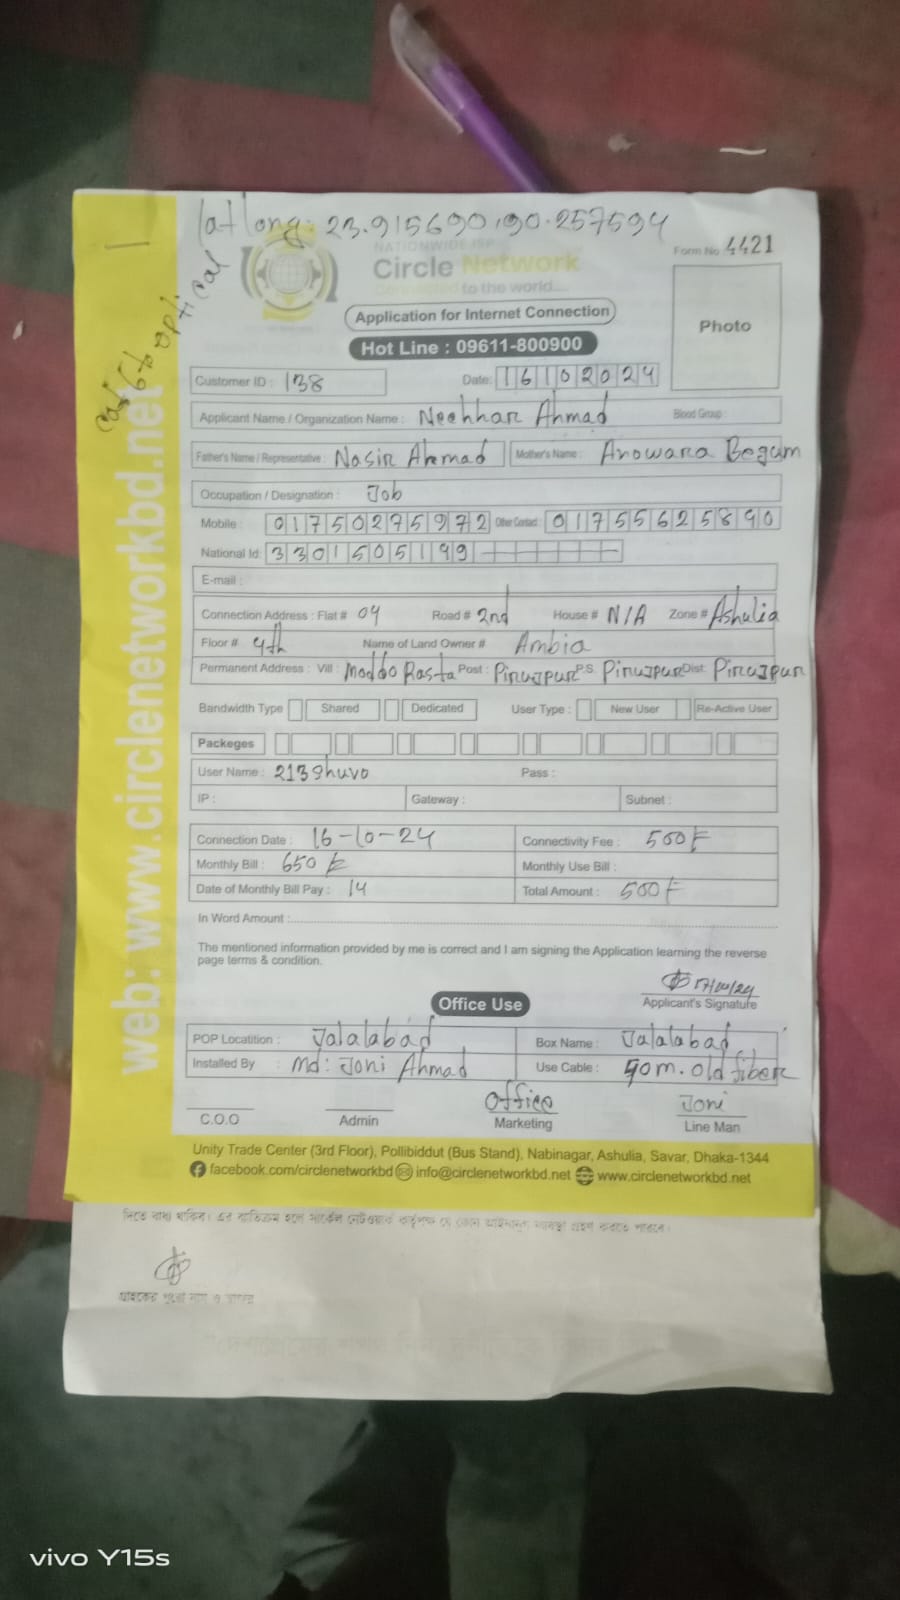 lat long: 23.915690,90.257594
cat6 to optical
NATIONWIDE ISP
Circle Network
Connected to the world....
Form No 4421
Photo
Application for Internet Connection
Hot Line : 09611-800900
Customer ID : 138 Date: 16102024
Applicant Name / Organization Name : Neehhar Ahmad Blood Group :
Father's Name / Representative : Nasir Ahmad Mother's Name : Anowara Begum
Occupation / Designation : Job
Mobile : 01750275972 Other Contact : 01755625890
National Id: 3301505199
E-mail :
Connection Address : Flat # 04 Road # 2nd House # N/A Zone # Ashulia
Floor # 4th Name of Land Owner # Ambia
Permanent Address : Vill : Moddo Rasta Post : Pirujpur P.S. Pirujpur Dist: Pirujpur
Bandwidth Type Shared Dedicated User Type : New User Re-Active User
Packeges
User Name : 213shuvo Pass :
IP : Gateway : Subnet :
Connection Date : 16-10-24 Connectivity Fee : 500
Monthly Bill : 650 Monthly Use Bill :
Date of Monthly Bill Pay : 14 Total Amount : 500
In Word Amount :
The mentioned information provided by me is correct and I am signing the Application learning the reverse
page terms & condition.
Applicant's Signature
Office Use
POP Locatition : Jalalabad Box Name : Jalalabad
Installed By : Md: Joni Ahmad Use Cable : 50m. old fiber
Office Joni
C.O.O Admin Marketing Line Man
Unity Trade Center (3rd Floor), Pollibiddut (Bus Stand), Nabinagar, Ashulia, Savar, Dhaka-1344
facebook.com/circlenetworkbd info@circlenetworkbd.net www.circlenetworkbd.net
web: www.circlenetworkbd.net
vivo Y15s